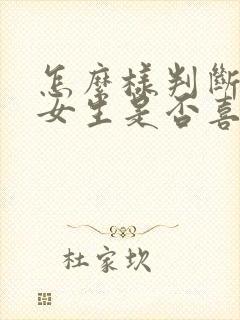 怎麼樣判斷
女生是否喜
杜家坎